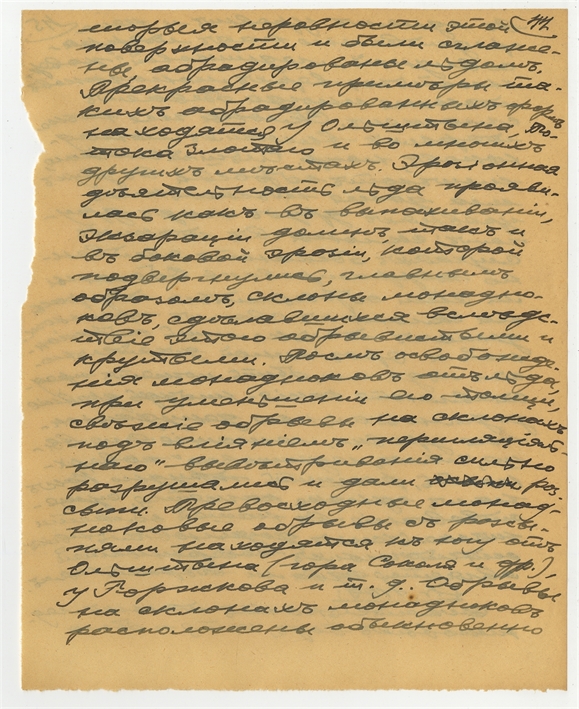 44.
торыя неровности этой
поверхности и были сглаже-
ны, абрадированы льдомъ.
Прекрасные примѣры та-
кихъ абрадированныхъ формъ
находятся у Ольштына, По-
тока Злотаго и во многихъ
другихъ мѣстахъ. Эрозіонная
дѣятельность льда прояви-
лась какъ въ выпахиваніи,
экзараціи долинъ, такъ и
въ боковой эрозіи, которой
подверглись, главнымъ
образомъ, склоны монадно-
ковъ, сдѣлавшихся вслѣдс-
твіе этого обрывистыми и
крутыми. Послѣ освобожде-
нія монадноковъ отъ льда,
при уменьшеніи его толщи,
свѣжіе обрывы на склонахъ
подъ вліяніемъ „перигляціяль-
наго" вывѣтриванія сильно
разрушались и дали роз-
сыпи. Превосходные монад-
ноковые обрывы съ розсы-
пями находятся къ югу отъ
Ольштына (гора Соколя и др.),
у Горжкова и т. д. Обрывы
на склонахъ монадноковъ
расположены обыкновенно